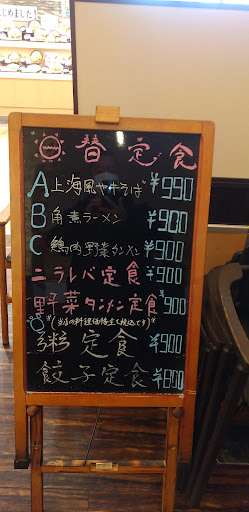 日替定食
A上海風やキそば ¥990
B角煮ラーメン ¥900
C鶏肉野菜タンメン ¥900
ニラレバ定食 ¥900
野菜タンメン定食 ¥900
(当店の料理価格全て税込です)
粥定食 ¥900
餃子定食 ¥890